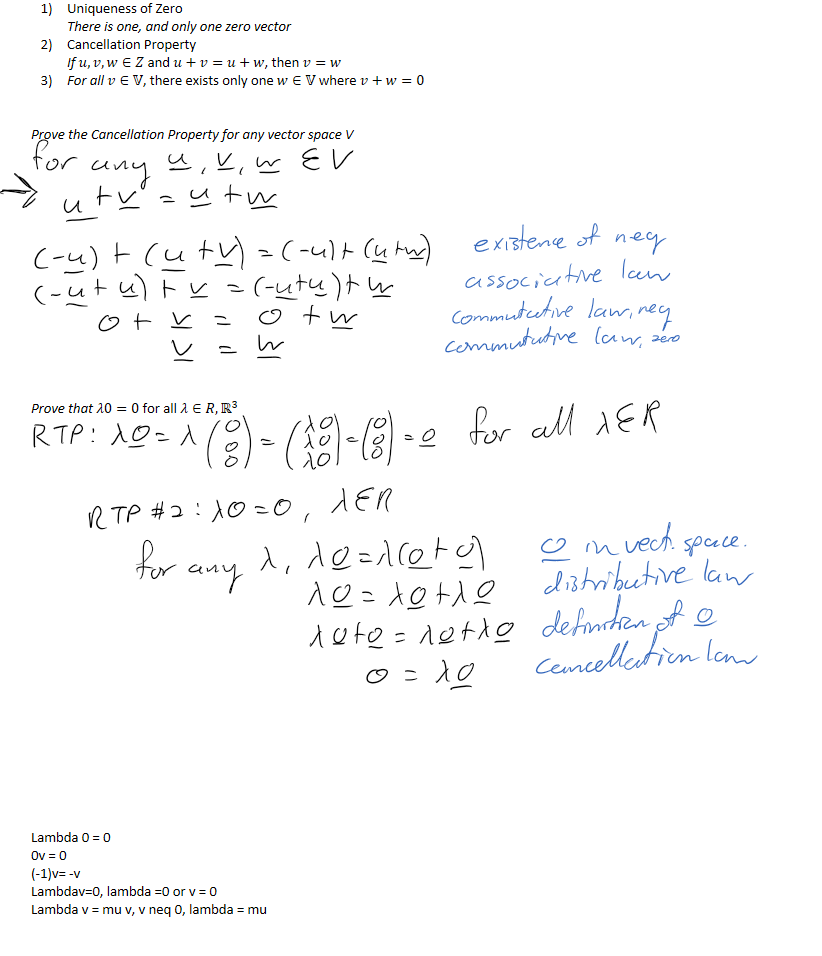 1) Uniqueness of Zero
There is one, and only one zero vector
2) Cancellation Property
If u, v, w ∈ Z and u + v = u + w, then v = w
3) For all v ∈ 𝕍, there exists only one w ∈ 𝕍 where v + w = 0
Prove the Cancellation Property for any vector space V
for any u, v, w ∈ V
→ u + v = u + w
(-u) + (u + v) = (-u) + (u + w) existence of neg
(-u + u) + v = (-u + u) + w associative law
0 + v = 0 + w commutative law, neg
v = w commutative law, zero
Prove that λ0 = 0 for all λ ∈ R, ℝ³
RTP: λ0 = λ(0 0 0) = (λ0 λ0 λ0) = (0 0 0) = 0 for all λ ∈ R
RTP #2: λ0 = 0, λ ∈ R
for any λ, λ0 = λ(0 + 0) 0 in vect. space.
λ0 = λ0 + λ0 distributive law
λ0 + 0 = λ0 + λ0 definition of 0
0 = λ0 cancellation law
Lambda 0 = 0
0v = 0
(-1)v= -v
Lambdav=0, lambda =0 or v = 0
Lambda v = mu v, v neq 0, lambda = mu